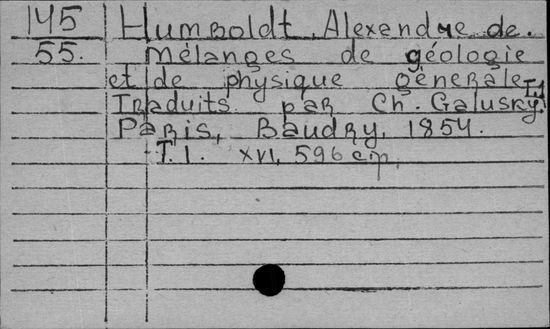 145 Humboldt, Alexandre de.
55. Mélanges de géologie
et de physique génerale T.1
Traduits par Ch. Galusky.
Paris, Baudry, 1854.
T.1. XVI, 596 стр.